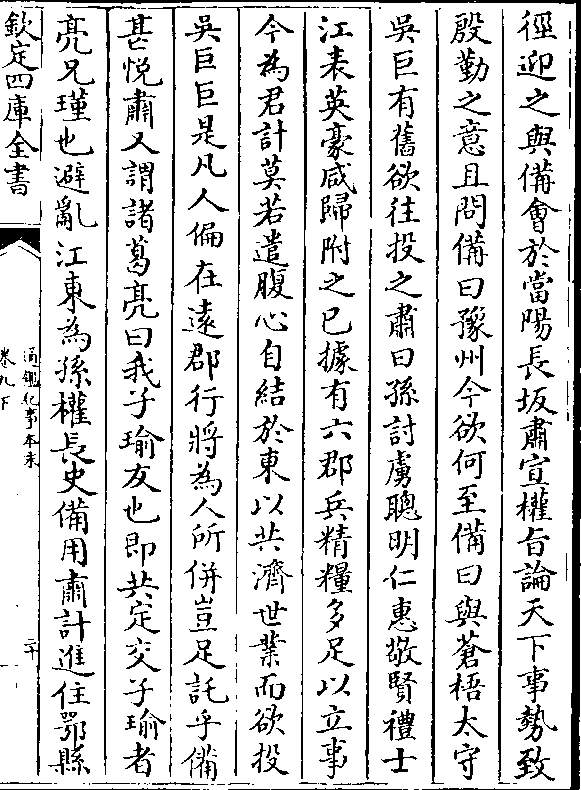 徑迎之與備會於當陽長坂肅宣權旨論天下事勢致
殷勤之意且問備曰豫州今欲何至備曰與蒼梧太守
吳巨有舊欲往投之肅曰孫討虜聰明仁惠敬賢禮士
江表英豪咸歸附之已據有六郡兵精糧多足以立事
今為君計莫若遣腹心自結於東以共濟世業而欲投
吳巨巨是凡人偏在遠郡行將為人所併豈足託乎備
甚悦肅又謂諸葛亮曰我子瑜友也即共定交子瑜者
亮兄瑾也避亂江東為孫權長史備用肅計進住鄂縣
欽定四庫全書
通鑑紀事本末
卷九下
二十